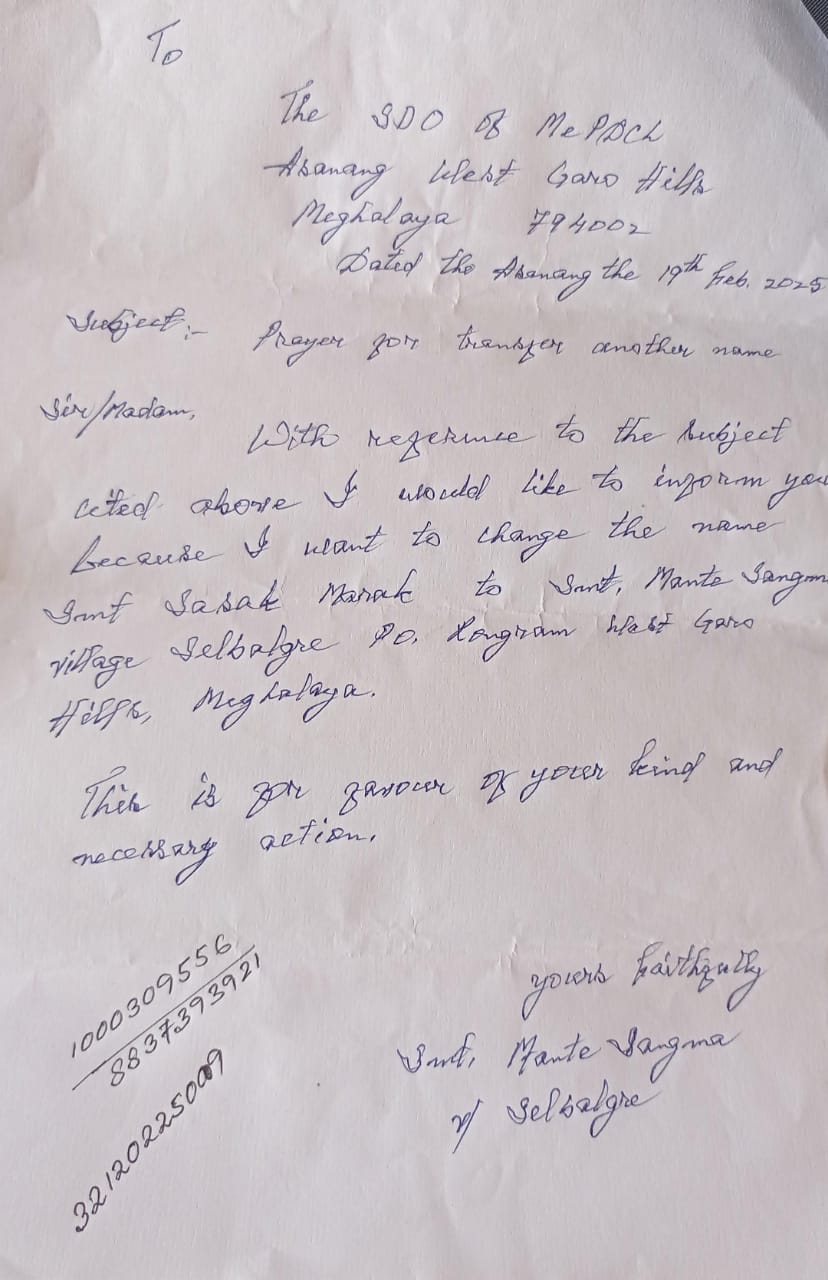 To
The SDO of MePDCL
Asanang West Garo Hills
Meghalaya 794002
Dated the Asanang the 19th Feb. 2025
Subject:- Prayer for transfer another name
Sir/Madam,
With reference to the subject
cited above I would like to inform you
because I want to change the name
Smt Sasak Marak to Smt. Mante Sangma
village Selbalgre PO. Rongram West Garo
Hills, Meghalaya.
This is for favour of your kind and
necessary action.
yours faithfully
Smt. Mante Sangma
v/ Selbalgre
1000309556
8837393921
32120225009